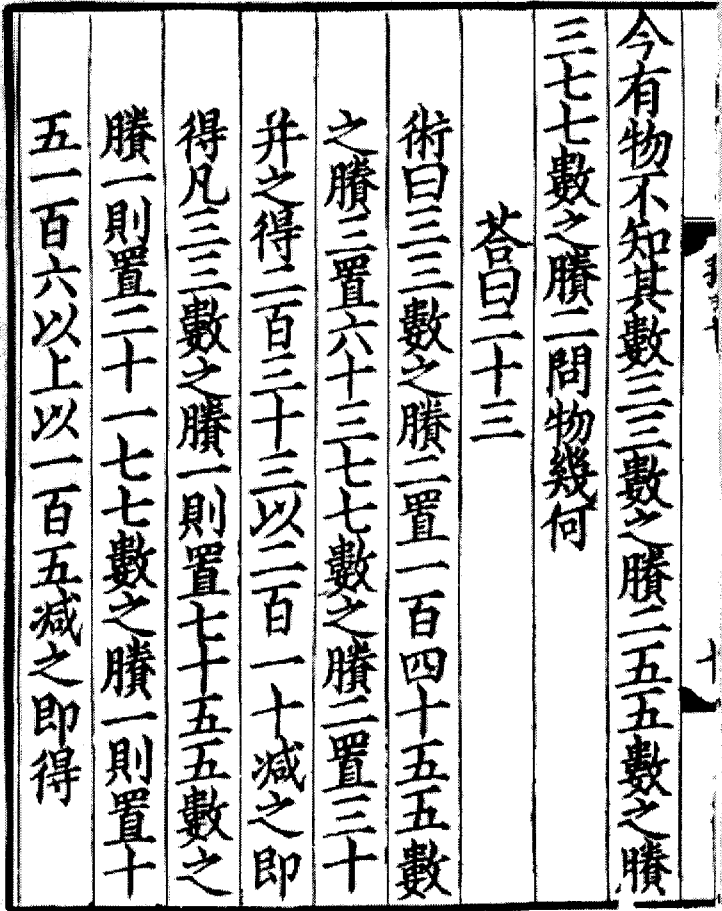 今有物不知其數三三數之賸二五五數之賸
三七七數之賸二問物幾何
荅曰二十三
術曰三三數之賸二置一百四十五五數
之賸三置六十三七七數之賸二置三十
并之得二百三十三以二百一十减之即
得凡三三數之賸一則置七十五五數之
賸一則置二十一七七數之賸一則置十
五一百六以上以一百五减之即得